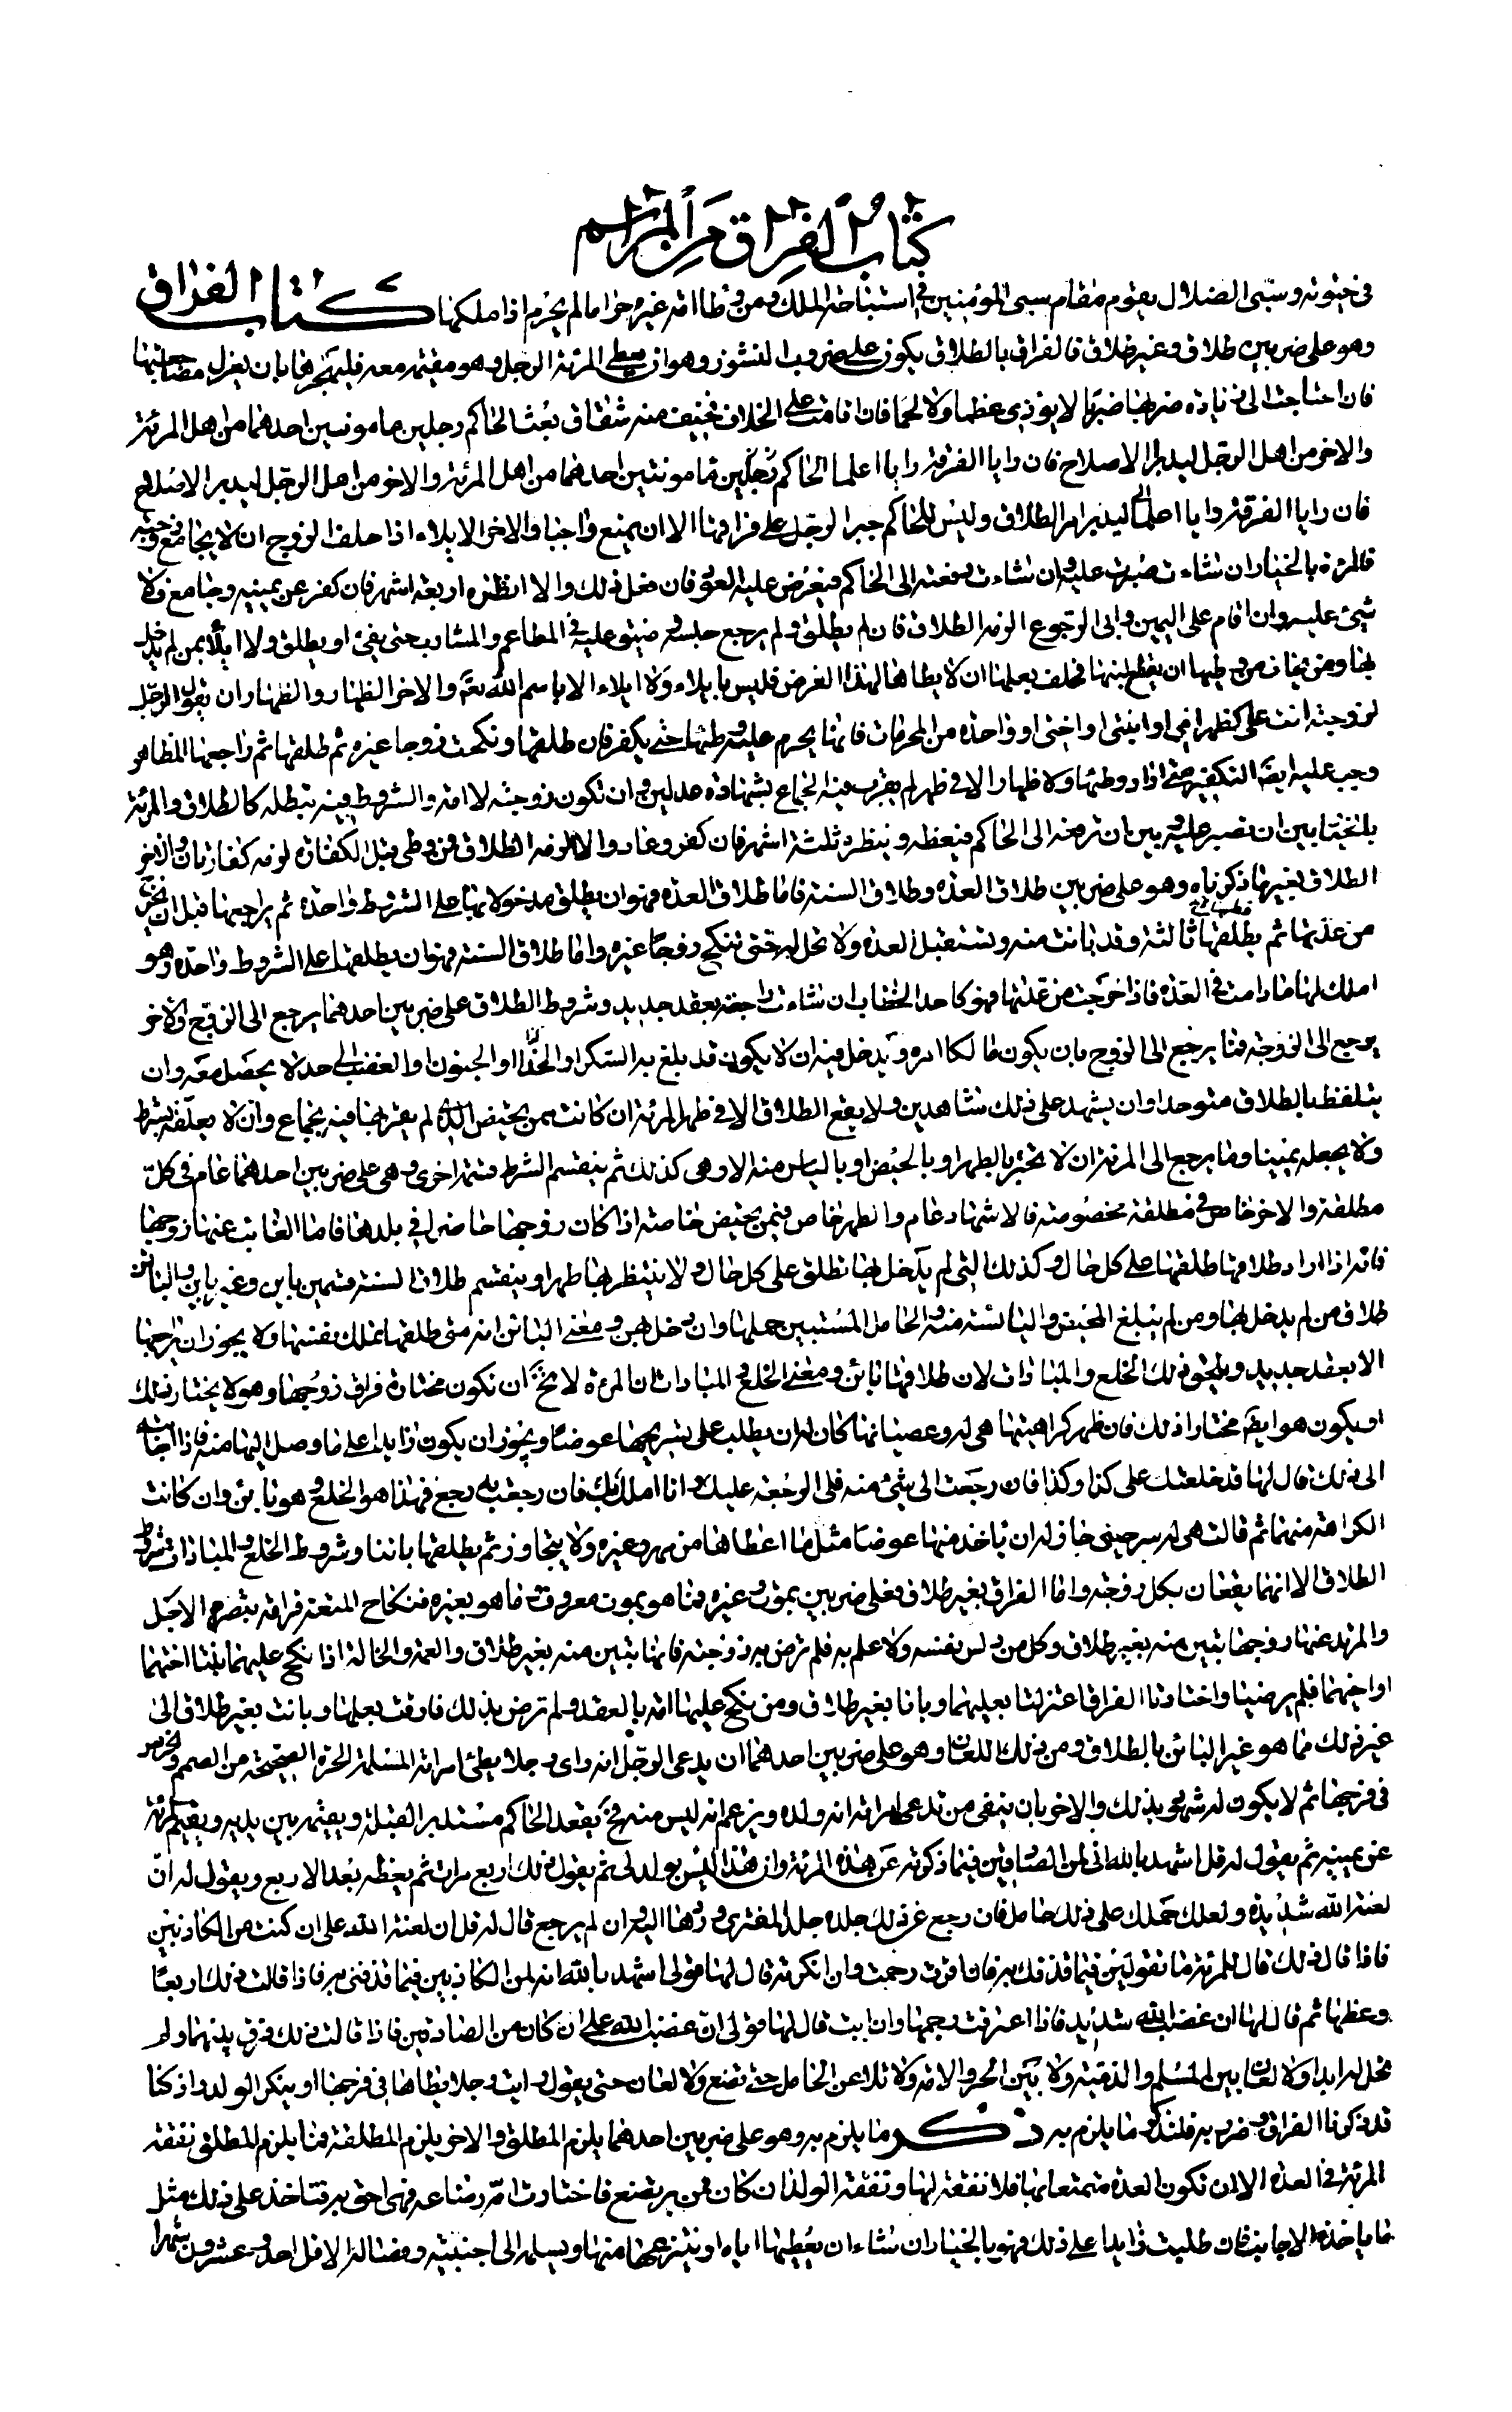 كتاب الفراق من المراسم
في خيوته وسبى الضلال يقوم مقام سبى المؤمنين في استباحة الملك ومن وطأ امة غيره حراما لم يحرم اذا ملكها كتاب الفراق
وهو على ضربين طلاق وغير طلاق فالفراق بالطلاق يكون على ضروب النشوز وهو ان المرئة الرجل وهو مقيمة معه فليهجرها بان يعزل مضاجعتها
فان احتاجت الى زيادة ضربها ضربا لا يوذى عظما ولا لحما فان اقامت على الخلاف فخيف منه شقاق بعث الحاكم رجلين مامونين احدهما من اهل المرئة
والاخر من اهل الرجل ليدبرا الاصلاح فان رايا الفرقة رايا اعلما الحاكم رجلين مامونين احدهما من اهل المرئة والاخر من اهل الرجل ليدبر الاصلاح
فان رايا الفرقة رايا اعلما ليدبر امر الطلاق وليس للحاكم جبر الرجل على فراقها الا ان يمنع واجبا والاخر الايلاء اذا حلف الزوج ان لا يجامع زوجته
فالمرة بالخيار ان شاءت صبرت عليه وان شاءت رفعته الى الحاكم فيعرض عليه العود فان فعل ذلك والا انظره اربعة اشهر فان كفر عن يمينه وجامع فلا
شيئ عليه وان اقام على اليمين وابى الرجوع الزمه الطلاق فان لم يطلق ولم يرجع حبسه وضيق عليه في المطاعم والمشارب حتى يفئ او يطلق ولا ايلاء بمن لم يدخل
بها ومن يخاف من وطيها ان يقطع لبنها فحلف بعلها ان لا يطاها لهذا الغرض فليس بايلاء ولا ايلاء الا باسم الله تع والاخر الظهار والظهار ان يقول الرجل
لزوجته انت على كظهر امى او ابنتى او اختى او واحدة من المحرمات فانها يحرم عليه وطئها حتى يكفر فان طلقها ونكحت زوجا غيره ثم طلقها ثم راجعها المظاهر
وجب عليه ايضا التكفير متى اراد وطئها ولا ظهار الا في طهر لم يقرب فيه الجماع بشهادة عدلين وان تكون زوجته لا امة والشروط فيه تبطله كالطلاق والمرئة
بالخيار بين ان تصبر عليه وبين ان ترفعه الى الحاكم فيعظه وينظره ثلثة اشهر فان كفر وعاد والا الزمه الطلاق فان وطى قبل الكفارة لزمه كفارتان والاخر
الطلاق بغير ما ذكرناه وهو على ضربين طلاق العدة وطلاق السنة فاما طلاق العدة فهو ان يطلق مدخولا بها على الشروط واحدة ثم يراجعها قبل ان تخرج
من عدتها ثم يطلقها ثالثة وقد بانت منه وتستقبل العدة ولا تحل له حتى تنكح زوجا غيره واما طلاق السنة فهو ان يطلقها على الشروط واحدة وهو
املك لها ما دامت في العدة فاذا خرجت من عدتها فهو كاحد الخطاب ان شاءت راجعته بعقد جديد وشروط الطلاق على ضربين احدهما يرجع الى الزوج والاخر
يرجع الى الزوجة فما يرجع الى الزوج بان يكون مالكا امره ويدخل فيه ان لا يكون قد بلغ به السكر او الجنون او الغضب الى حد لا يحصل معه وان
يتلفظ بالطلاق متوحدا وان يشهد على ذلك شاهدين ولا يقع الطلاق الا في طهر المرئة ان كانت ممن يحيض الذى لم يقربها فيه بجماع وان لا يعلقه بشرط
ولا يجعله يمينا وما يرجع الى المرئة ان لا تخبر بالطهر او بالحيض او بالياس منه الا وهى كذلك ثم ينقسم الشرط قسمة اخرى وهى على ضربين احدهما عام في كل
مطلقة والاخر خاص في مطلقة مخصوصة فالاشهاد عام والطهر خاص فيمن يحيض خاصة اذا كان زوجها حاضرا في بلدها فاما الغائب عنها زوجها
فانه اذا اراد طلاقها طلقها على كل حال وكذلك التى لم يدخل بها تطلق على كل حال ولا ينتظر بها طهرا وينقسم طلاق السنة قسمين باين وغير باين والبائن
طلاق من لم يدخل بها ومن لم يبلغ المحيض واليائسة منه والحامل المستبين حملها وان دخل بهن ومعنى البائن انه متى طلقها تملك نفسها ولا يجوز ان يراجعها
الا بعقد جديد ويلحق بذلك الخلع والمبارات لان طلاقهما بائن ومعنى الخلع والمبارات ان المرءة لا تخ ان تكون مختارة فراق زوجها وهو لا يختار ذلك
او يكون هو ايضا مختارا ذلك فان ظهر كراهيتها هى له وعصيانها كان له ان يطلب على تسريحها عوضا ويجوز ان يكون زايدا على ما وصل اليها منه فاذا اجابته
الى ذلك قال لها قد خلعتك على كذا وكذا فان رجعت الى شئ منه فلى الرجعة عليك وانا املك بك فان رجعت به رجع فهذا هو الخلع وهو بائن وان كانت
الكراهة منهما ثم قالت هى له سرحنى جاز له ان ياخذ منها عوضا مثل ما اعطاها من مهر وغيره ولا يتجاوز ثم يطلقها بائنا وشروط الخلع والمبارات شروط
الطلاق الا انهما يقعان بكل زوجة واما الفراق بغير طلاق فعلى ضربين بموت وغيره فما هو بموت معروف وما هو بغيره فنكاح المتعة فراقه بتصرم الاجل
والمرتد عنها زوجها تبين منه بغير طلاق وكل من دلس بنفسه ولا علم به فلم ترض به زوجته فانها تبين منه بغير طلاق والعمة والخالة اذا نكح عليهما بنتا اختهما
او اخيهما فلم يرضيا واختارتا الفراق اعتزلتا بعليهما وبانا بغير طلاق ومن نكح عليها امة بالعقد ولم ترض بذلك فارقت بعلها وبانت بغير طلاق الى
غير ذلك مما هو غير البائن بالطلاق ومن ذلك اللعان وهو على ضربين احدهما ان يدعى الرجل انه راى رجلا يطئ امراته المسلمة الحرة الصحيحة من الصمم والخرس
في فرجها ثم لا يكون له شهود بذلك والاخر بان ينفى من تدعى امراته انه ولده ويزعم انه ليس منه فح يقعد الحاكم مستدبر القبلة ويقيمه بين يديه ويقيم المرئة
عن يمينه ثم يقول له قل اشهد بالله انى لمن الصادقين فيما ذكرته عن هذه المرئة وان هذا ليس بولدى ثم يقول ذلك اربع مرات ثم يعظه بعد الاربع ويقول له ان
لعنة الله شديدة ولعلك حملك على ذلك حامل فان رجع عن ذلك جلده جلد المفترى وردها اليه وان لم يرجع قال له قل ان لعنة الله على ان كنت من الكاذبين
فاذا قال ذلك قال للمرئة ما تقولين فيما قذفك به فان اقرت رجمت وان انكرته قال لها قولى اشهد بالله انه لمن الكاذبين فيما قذفنى به فاذا قالت ذلك اربعا
وعظها ثم قال لها ان غضب الله شديد فاذا اعترفت رجمها وان ابت قال لها قولى ان غضب الله على ان كان من الصادقين فاذا قالت ذلك فرق بينهما ولم
تحل له ابدا ولا لعان بين المسلم والذمية ولا بين الحر والامة ولا تلاعن الحامل حتى تضع ولا لعان حتى يقول رايت رجلا يطاها في فرجها او ينكر الولد واذ كنا
قد ذكرنا الفراق وضروبه فلنذكر ما يلزم به ذكر ما يلزم به وهو على ضربين احدهما يلزم المطلق والاخر يلزم المطلقة فما يلزم المطلق نفقة
المرئة في العدة الا ان تكون العدة متمتعا بها فلا نفقة لها ونفقة الولد ان كان فمن يرتضع فاختارت امه رضاعه فهى احق به فتاخذ على ذلك مثل
ما ياخذه الاجانب فان طلبت زايدا على ذلك فهو بالخيار ان شاء ان يعطيها اياه او ينتزعها منها ويسلمه الى اجنبية ورضاع الاقل احد وعشرون شهرا